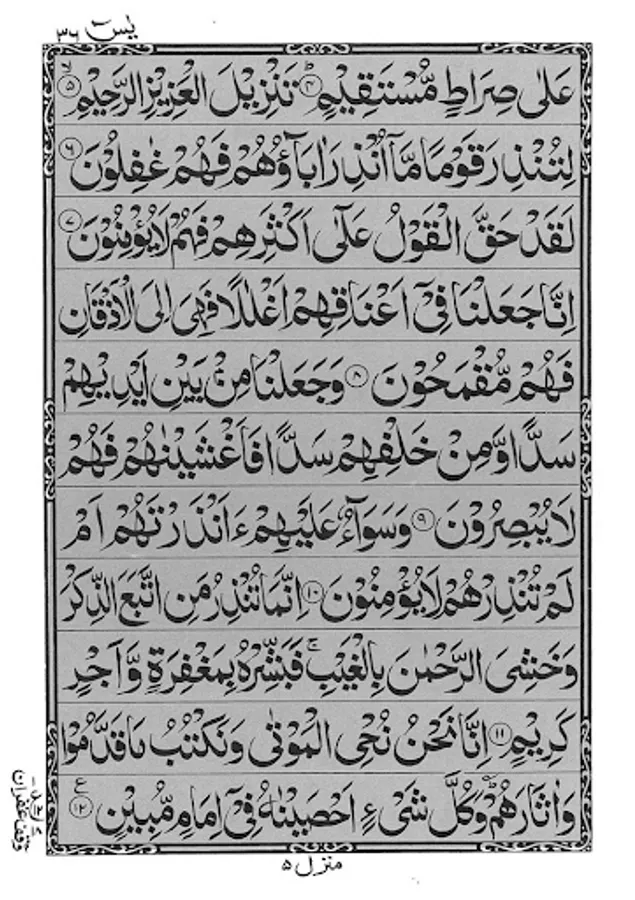 يٰسٓ ٣٦
عَلٰى صِرَاطٍ مُّسْتَقِيْمٍ ؕ﴿۴﴾ تَنْزِيْلَ الْعَزِيْزِ الرَّحِيْمِ ۙ﴿۵﴾
لِتُنْذِرَ قَوْمًا مَّاۤ اُنْذِرَ اٰبَآؤُهُمْ فَهُمْ غٰفِلُوْنَ ﴿۶﴾
لَقَدْ حَقَّ الْقَوْلُ عَلٰۤى اَكْثَرِهِمْ فَهُمْ لَا يُؤْمِنُوْنَ ﴿۷﴾
اِنَّا جَعَلْنَا فِىْۤ اَعْنَاقِهِمْ اَغْلٰلًا فَهِىَ اِلَى الْاَذْقَانِ
فَهُمْ مُّقْمَحُوْنَ ﴿۸﴾ وَجَعَلْنَا مِنْۢ بَيْنِ اَيْدِيْهِمْ
سَدًّا وَّمِنْ خَلْفِهِمْ سَدًّا فَاَغْشَيْنٰهُمْ فَهُمْ
لَا يُبْصِرُوْنَ ﴿۹﴾ وَسَوَآءٌ عَلَيْهِمْ ءَاَنْذَرْتَهُمْ اَمْ
لَمْ تُنْذِرْهُمْ لَا يُؤْمِنُوْنَ ﴿۱۰﴾ اِنَّمَا تُنْذِرُ مَنِ اتَّبَعَ الذِّكْرَ
وَخَشِىَ الرَّحْمٰنَ بِالْغَيْبِ ۚ فَبَشِّرْهُ بِمَغْفِرَةٍ وَّاَجْرٍ
كَرِيْمٍ ﴿۱۱﴾ اِنَّا نَحْنُ نُحْىِ الْمَوْتٰى وَنَكْتُبُ مَا قَدَّمُوْا
وَاٰثَارَهُمْ ؕ وَكُلَّ شَىْءٍ اَحْصَيْنٰهُ فِىْۤ اِمَامٍ مُّبِيْنٍ ﴿۱۲﴾ ع
وقف غفران
منزل ۵